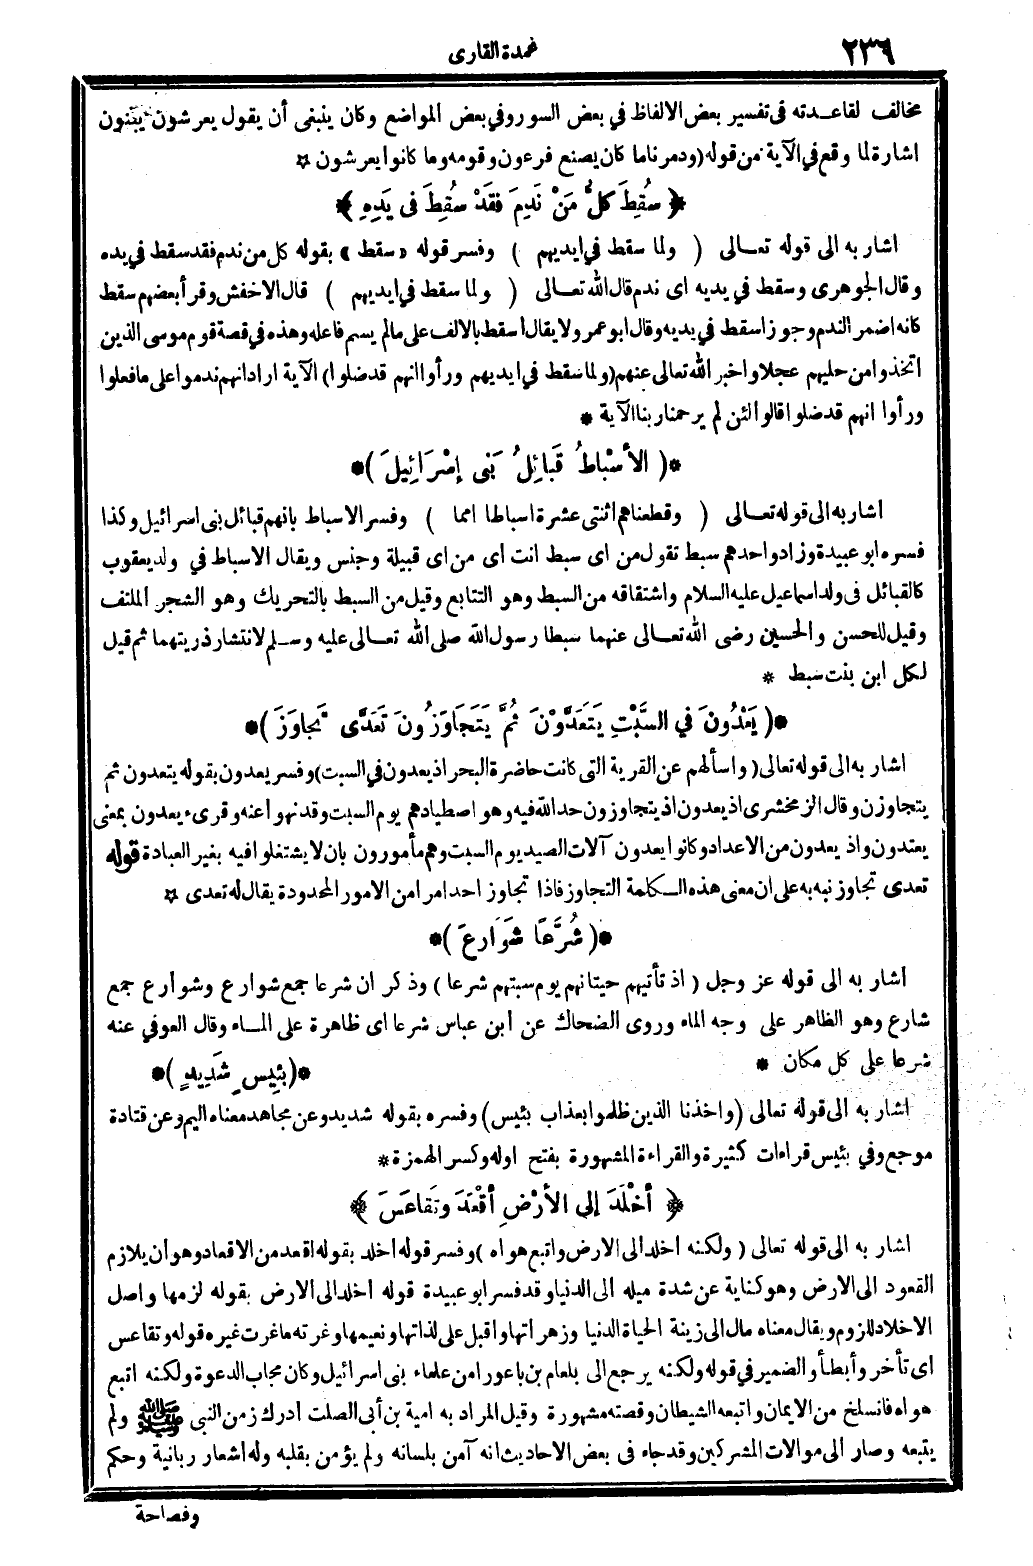 ٢٣٦
عمدة القارى
مخالف لقاعدته فى تفسير بعض الالفاظ في بعض السور وفي بعض المواضع وكان ينبغى أن يقول يعرشون يبنون
اشارة لما وقع في الآية من قوله (ودمرنا ما كان يصنع فرعون وقومه وما كانوا يعرشون ☆
﴿ سُقِطَ كلُّ مَنْ نَدِمَ فقَدْ سُقِطَ فى يَدِهِ ﴾
اشار به الى قوله تعـالى ( ولما سقط في ايديهم ) وفسر قوله «سقط» بقوله كل من ندم فقد سقط في يده
وقال الجوهرى وسقط في يديه اى ندم قال الله تعـالى ( ولما سقط في ايديهم ) قال الاخفش وقرأ بعضهم سقط
كانه اضمر الندم وجوز اسقط في يديه وقال ابو عمر ولا يقال اسقط بالالف على مالم يسم فاعله وهذه في قصة قوم موسى الذين
اتخذوا من حليهم عجلا واخبر الله تعالى عنهم (ولما سقط في ايديهم ورأوا انهم قد ضلوا) الآية اراد انهم ندموا على ما فعلوا
ورأوا انهم قد ضلوا قالوا لئن لم يرحمنا ربنا الآية *
*( الأسْباطُ قَبائِلُ بَنى إسْرَائِيلَ )*
اشار به الى قوله تعـالى ( وقطعناهم اثنتى عشرة اسباطا امما ) وفسر الاسباط بانهم قبائل بنى اسرائيل وكذا
فسره ابو عبيدة وزاد واحدهم سبط تقول من اى سبط انت اى من اى قبيلة وجنس ويقال الاسباط في ولد يعقوب
كالقبائل فى ولد اسماعيل عليه السلام واشتقاقه من السبط وهو التتابع وقيل من السبط بالتحريك وهو الشجر الملتف
وقيل للحسن والحسين رضى الله تعـالى عنهما سبطا رسول الله صلى الله تعـالى عليه وسـلم لانتشار ذريتهما ثم قيل
لكل ابن بنت سبط *
*( يَعْدُونَ في السَّبْتِ يَتَعَدَّوْنَ ثُمَّ يَتَجَاوَزُونَ تَعَدَّى تَجاوَزَ )*
اشار به الى قوله تعالى (واسألهم عن القرية التى كانت حاضرة البحر اذ يعدون في السبت) وفسر يعدون بقوله يتعدون ثم
يتجاوزن وقال الزمخشرى اذ يعدون اذ يتجاوزون حد الله فيه وهو اصطيادهم يوم السبت وقد نهوا عنه وقرىء يعدون بمعنى
يعتدون واذ يعدون من الاعداد وكانوا يعدون آلات الصيد يوم السبت وهم مأمورون بان لا يشتغلوا فيه بغير العبادة قوله
تعدى تجاوز نبه به على ان معنى هذه الـكلمة التجاوز فاذا تجاوز احد امرا من الامور المحدودة يقال له تعدى ☆
*( شُرَّعًا شَوَارِعَ )*
أشار به الى قوله عز وجل ( اذ تأتيهم حيتانهم يوم سبتهم شرعا ) وذكر ان شرعا جمع شوارع وشوارع جمع
شارع وهو الظاهر على وجه الماء وروى الضحاك عن ابن عباس شرعا اى ظاهرة على المـاء وقال العوفي عنه
شرعا على كل مكان * *( بئِيسٍ شَدِيدٍ )*
اشار به الى قوله تعالى (واخذنا الذين ظلموا بعذاب بئيس) وفسره بقوله شديد وعن مجاهد معناه اليم وعن قتادة
موجع وفي بئيس قراءات كثيرة والقراءة المشهورة بفتح اوله وكسر الهمزة *
﴿ أخْلَدَ إلى الأرْضِ أقْعَدَ وتَقاعَسَ ﴾
اشار به الى قوله تعالى ( ولكنه اخلد الى الارض واتبع هواه ) وفسر قوله اخلد بقوله اقعد من الاقعاد وهو أن يلازم
القعود الى الارض وهو كناية عن شدة ميله الى الدنيا وقد فسر ابو عبيدة قوله اخلد الى الارض بقوله لزمها واصل
الاخلاد للزوم ويقال معناه مال الى زينة الحياة الدنيا وزهراتها واقبل على لذاتها ونعيمها وغرته ما غرت غيره قوله وتقاعس
اى تأخر وأبطأ والضمير في قوله ولكنه يرجع الى بلعام بن باعورا من علماء بنى اسرائيل وكان مجاب الدعوة ولكنه اتبع
هواه فانسلخ من الايمان واتبعه الشيطان وقصته مشهورة وقيل المراد به امية بن أبى الصلت أدرك زمن النبى ﷺ ولم
يتبعه وصار الى موالات المشركين وقد جاء فى بعض الاحاديث انه آمن بلسانه ولم يؤمن بقلبه وله اشعار ربانية وحكم
وفصاحة